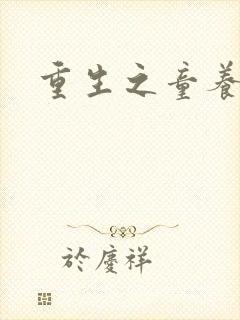 重生之童養
於慶祥